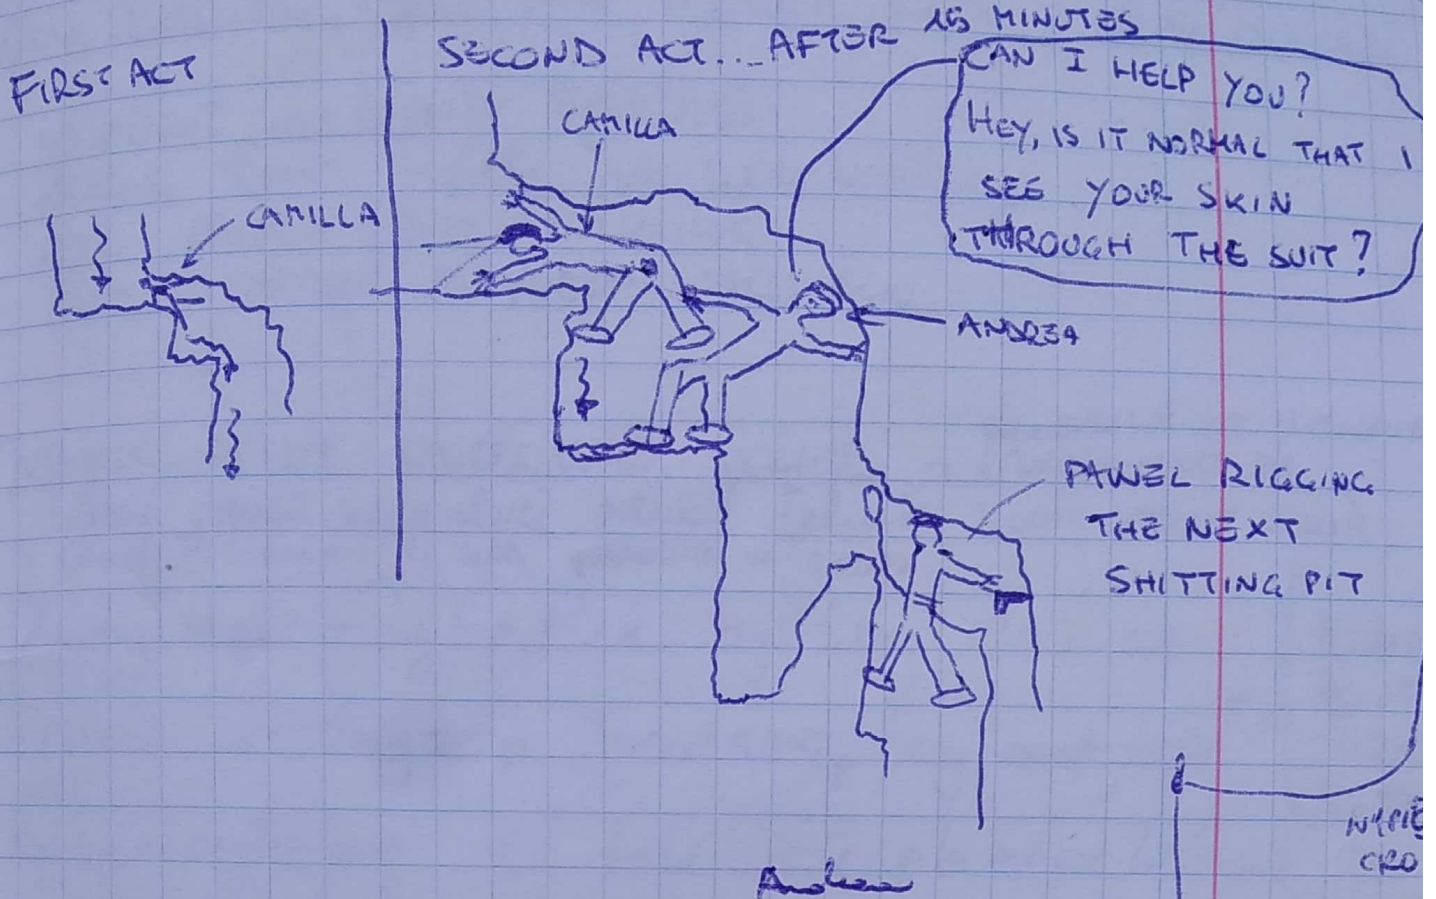 FIRST ACT
CAMILLA
SECOND ACT... AFTER 15 MINUTES
CAMILLA
CAN I HELP YOU?
HEY, IS IT NORMAL THAT I
SEE YOUR SKIN
THROUGH THE SUIT?
ANDREA
PAWEL RIGGING
THE NEXT
SHITTING PIT
CRO
Andrea